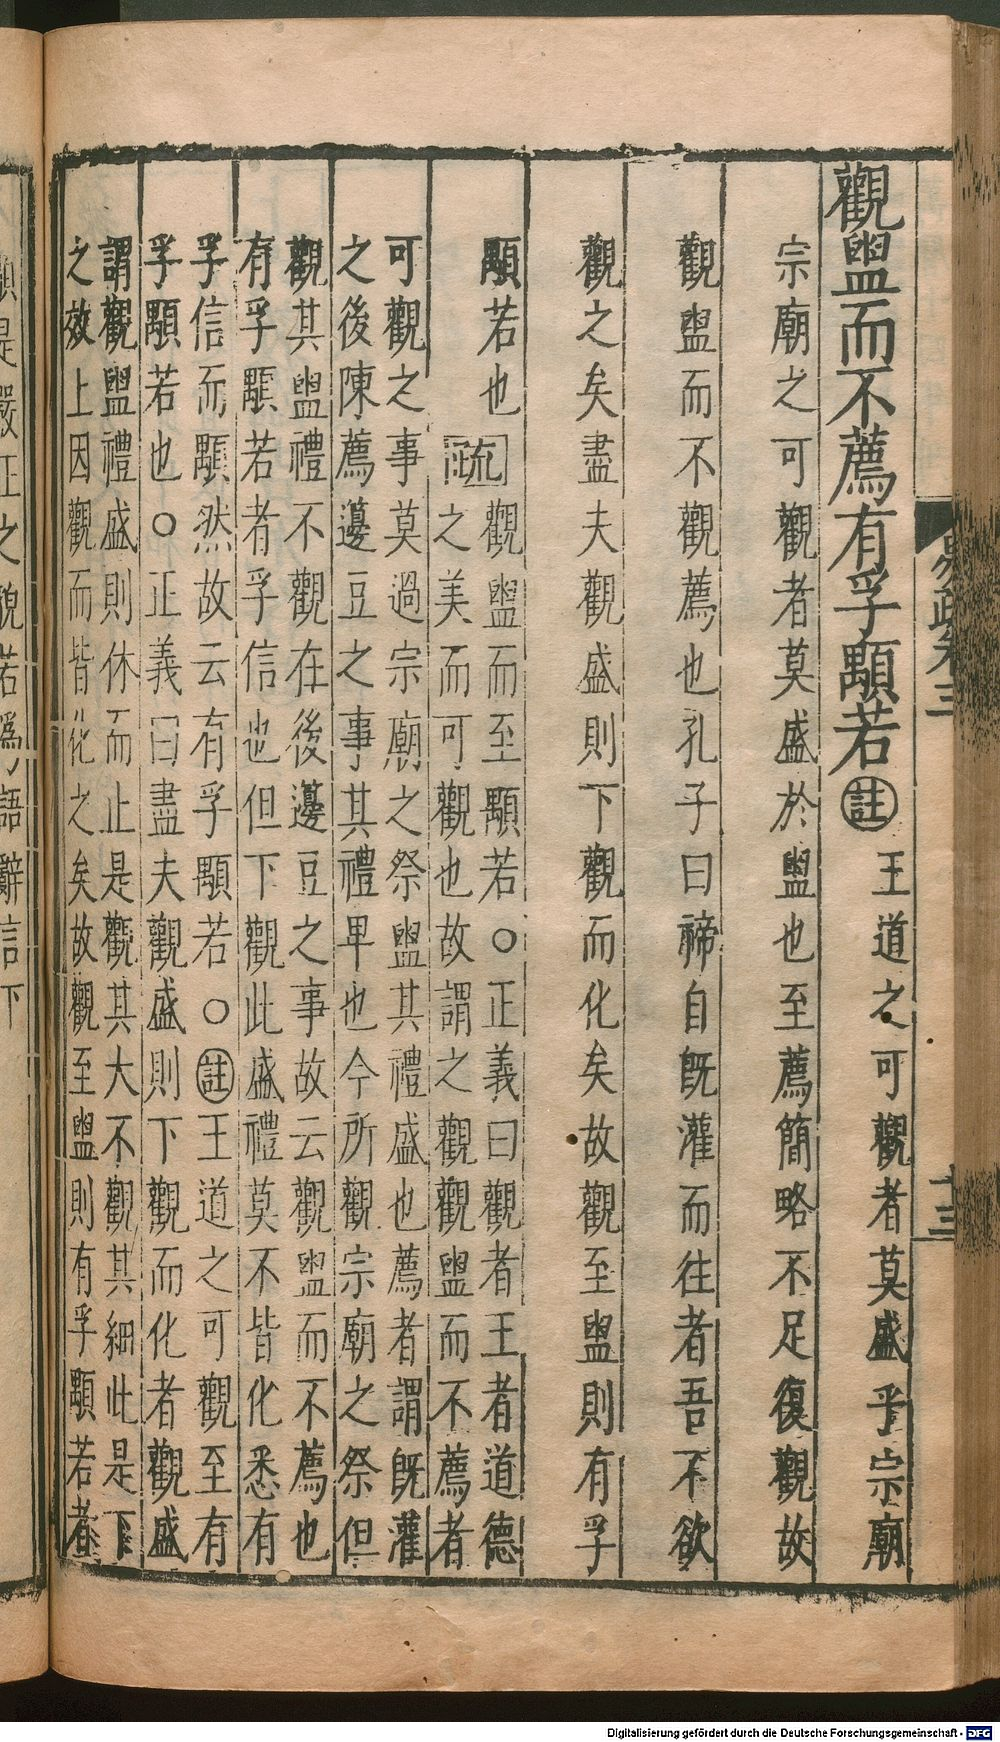 觀盥而不薦有孚顒若註王道之可觀者莫盛乎宗廟
宗廟之可觀者莫盛於盥也至薦簡略不足復觀故
觀盥而不觀薦也孔子曰禘自旣灌而往者吾不欲
觀之矣盡夫觀盛則下觀而化矣故觀至盥則有孚
顒若也
疏觀盥而至顒若〇正義曰觀者王者道德
之美而可觀也故謂之觀觀盥而不薦者
可觀之事莫過宗廟之祭盥其禮盛也薦者謂旣灌
之後陳薦籩豆之事其禮卑也今所觀宗廟之祭但
觀其盥禮不觀在後籩豆之事故云觀盥而不薦也
有孚顒若者孚信也但下觀此盛禮莫不皆化悉有
孚信而顒然故云有孚顒若〇註王道之可觀至有
孚顒若也〇正義曰盡夫觀盛則下觀而化者觀盛
謂觀盥禮盛則休而止是觀其大不觀其細此是下
之效上因觀而皆化之矣故觀至盥則有孚顒若者
顒是嚴正之貌若爲語辭言下
易疏卷三
十三
Digitalisierung gefördert durch die Deutsche Forschungsgemeinschaft - DFG